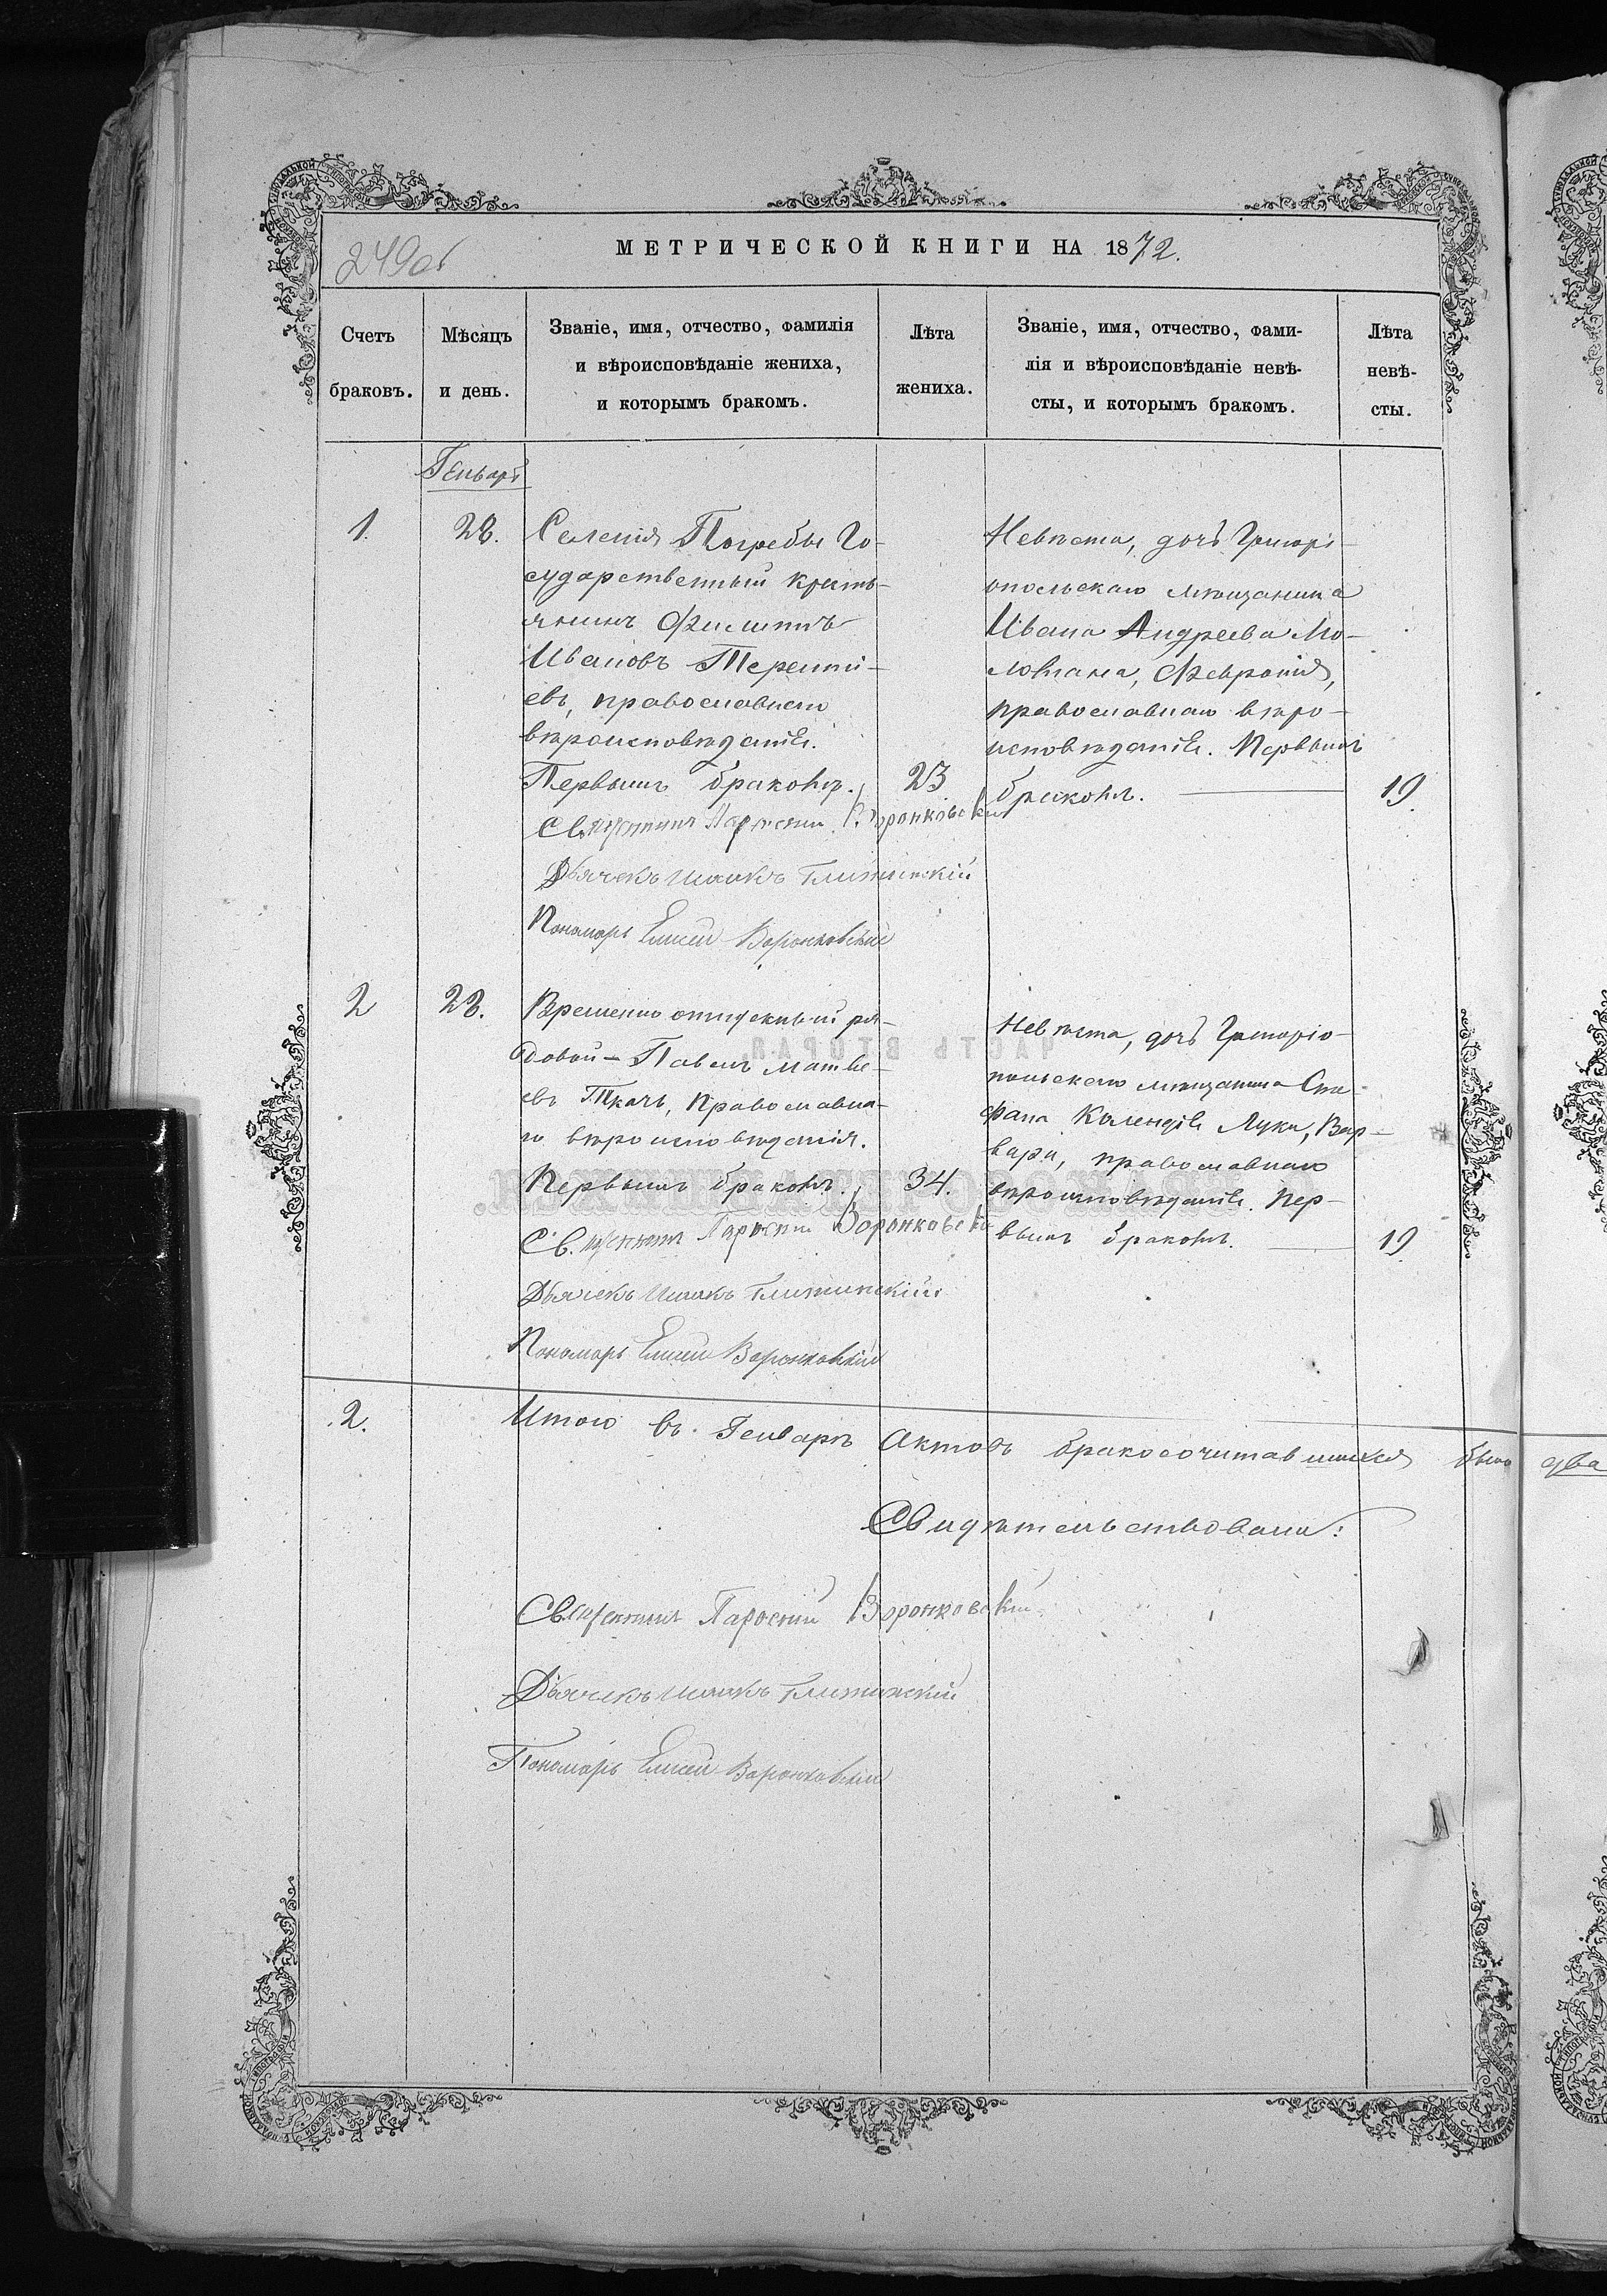 249об
МЕТРИЧЕСКОЙ КНИГИ НА 1872.
Счетъ браковъ.
Мѣсяцъ и день.
Званіе, имя, отчество, фамилія
и вѣроисповѣданіе жениха,
и которымъ бракомъ.
Лѣта жениха.
Званіе, имя, отчество, фами-
лія и вѣроисповѣданіе невѣ-
сты, и которымъ бракомъ.
Лѣта невѣ-
сты.
Генварь
1.
28.
Селенія Погребы Го-
сударственный кресть-
янинъ Филиппъ
Ивановъ Теренті-
евъ, православнаго
вѣроисповѣданія.
Первымъ бракомъ.
23
Священникъ Парѳеній Воронковскій
Дьячекъ Исаакъ
Пономарь Елисей Воронковскій
Невѣста, дочь Григорі-
опольскаго мѣщанина
Ивана Андреева Мо-
лована, Февронія,
православнаго вѣро-
исповѣданія. Первымъ
бракомъ.
19.
2
28.
Временно отпускный ря-
довой - Павелъ Матве-
евъ Ткачъ, православна-
го вѣроисповѣданія.
Первымъ бракомъ.
34.
Священникъ Парѳеній Воронковскій
Дьячекъ Исаакъ
Пономарь Елисей Воронковскій
Невѣста, дочь Григоріо-
польскаго мѣщанина Сте-
фана Лука, Вар-
вара, православнаго
вѣроисповѣданія. Пер-
вымъ бракомъ.
19
2.
Итого въ Генварѣ Актовъ бракосочитавшихся было два
Свидѣтельствовали:
Священникъ Парѳеній Воронковскій
Дьячекъ Исаакъ
Пономарь Елисей Воронковскій